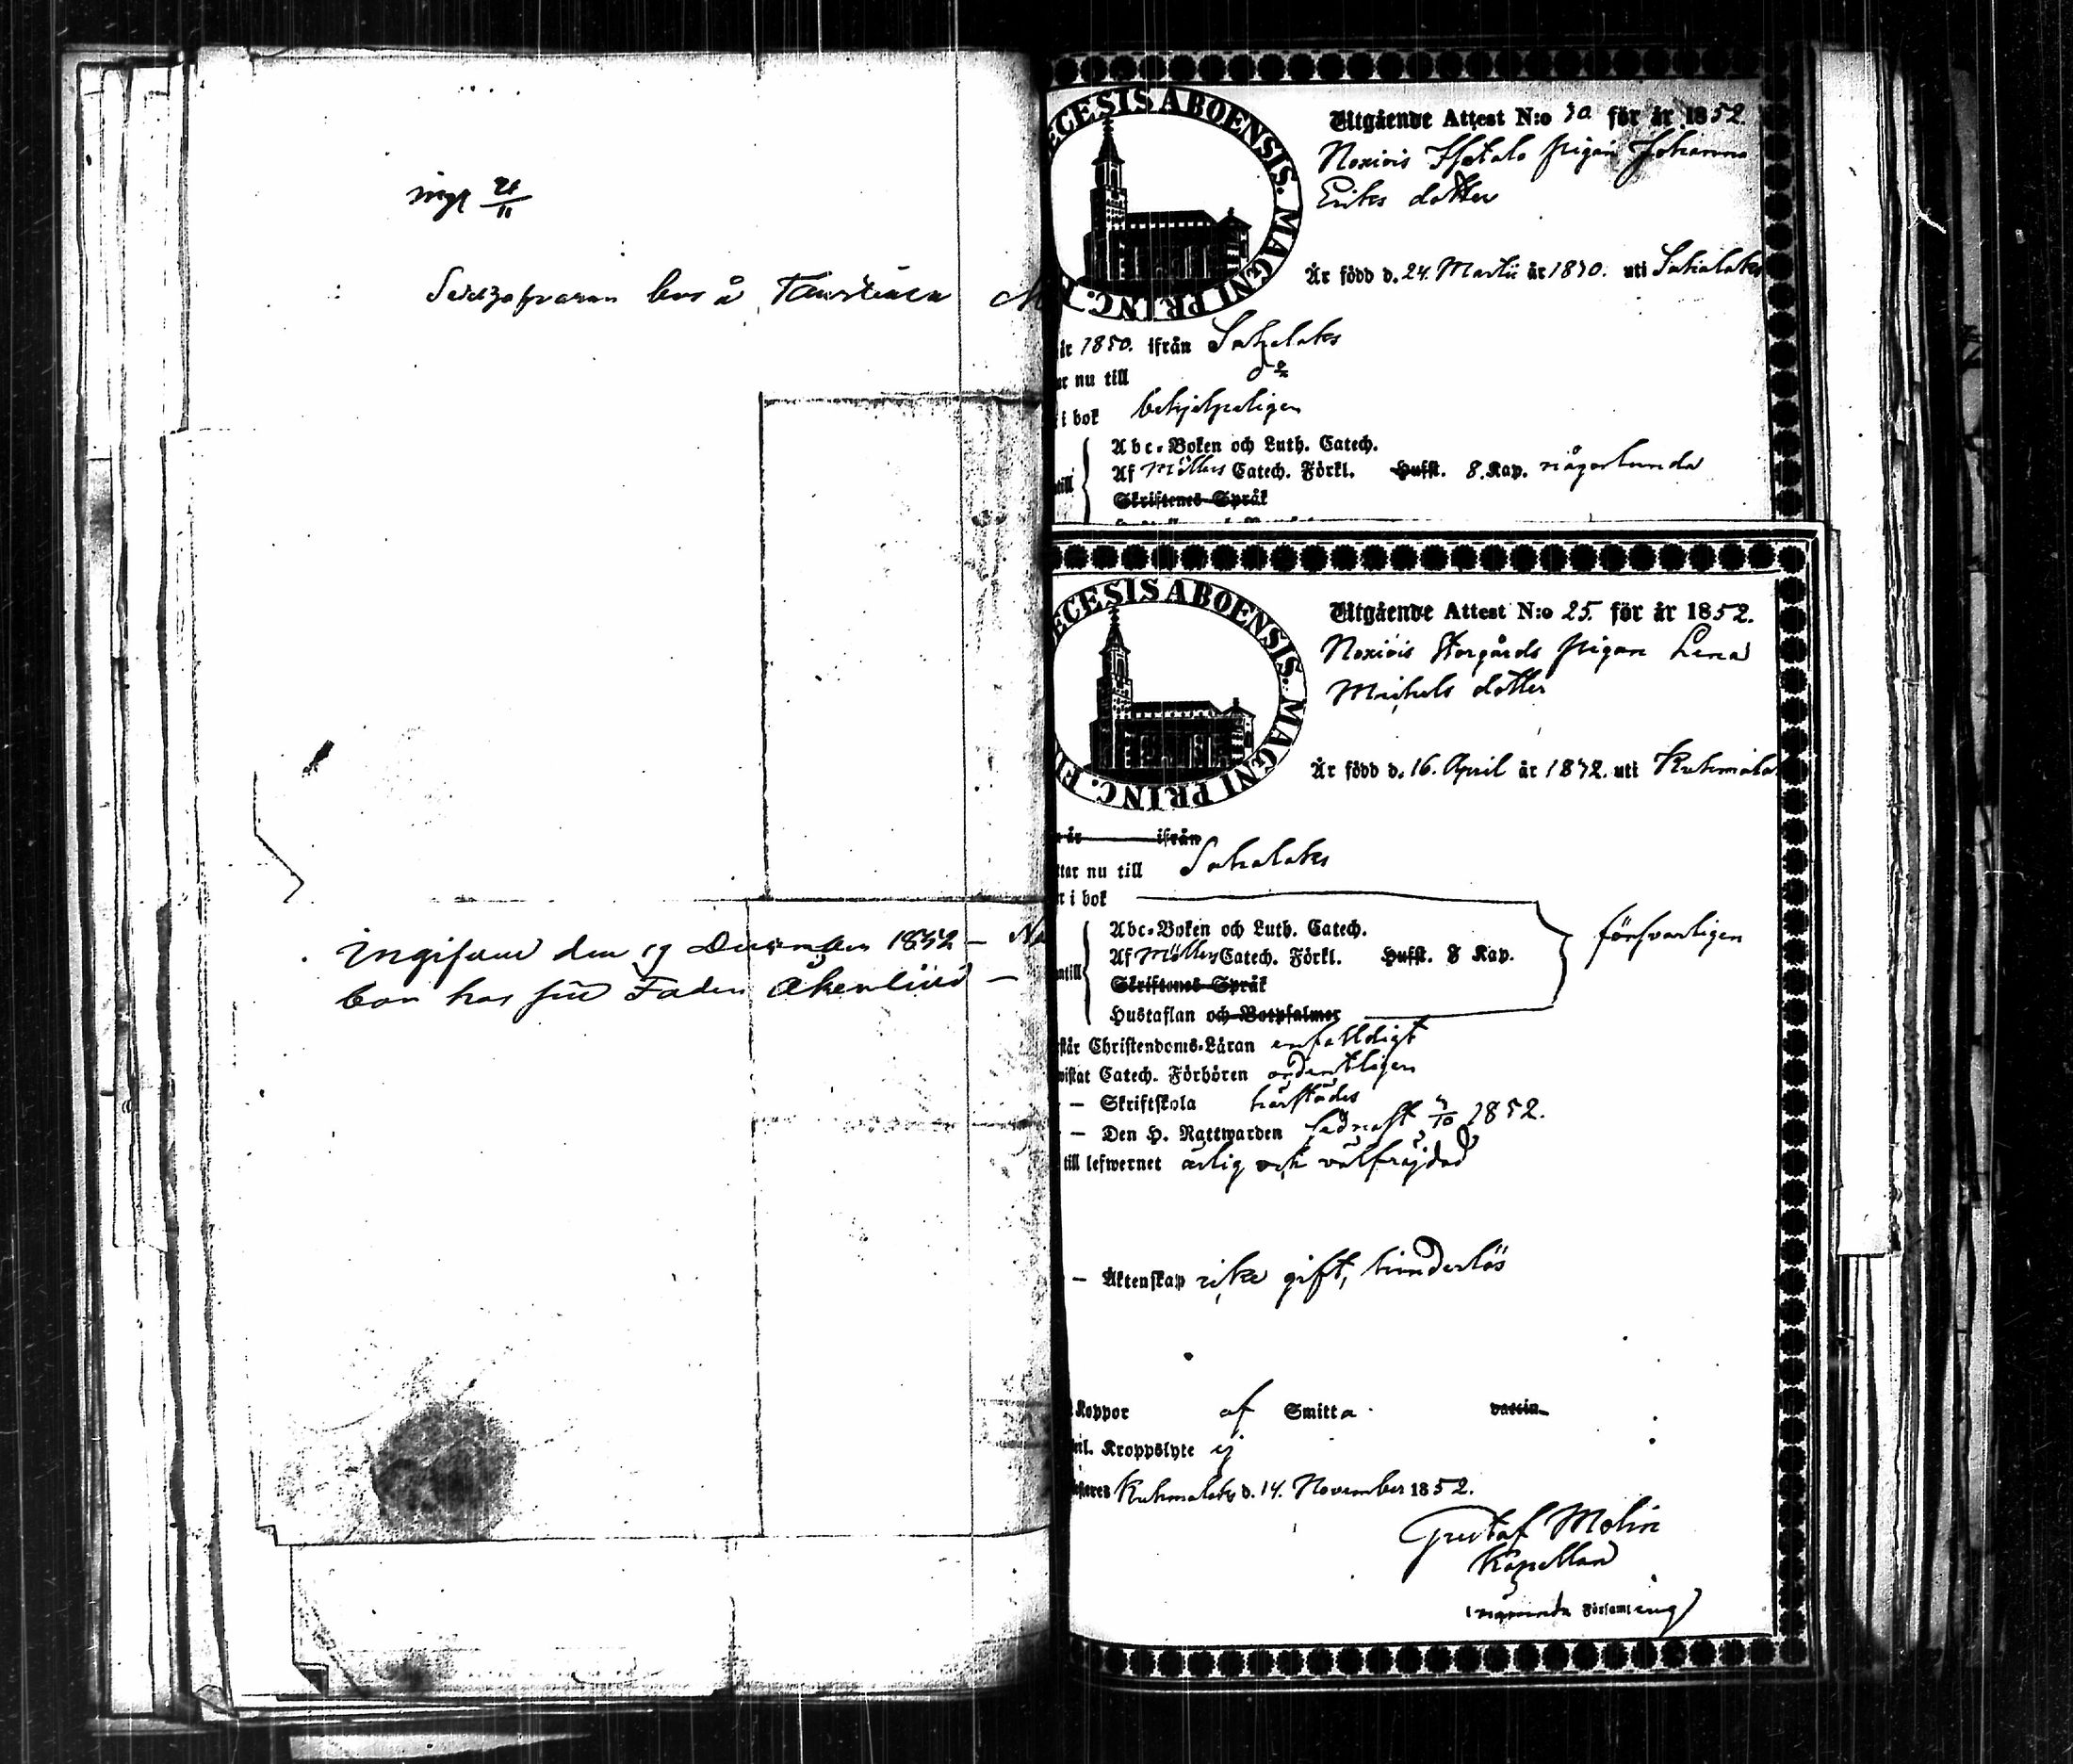 ingf 21/11
boa å
ingifven den 17 December 1852 –
boa hos sin Fader Åkerlind –
ECESIS ABOENSIS. MAGNI PRINC. F
Utgående Attest N:o 30 för år 1852.
Noxiois pigan Johanna
Eriks dotter
Är född d. 24. Martii år 1830. uti Sahalaks
år 1850. ifrån Sahalaks
nu till do
i bok behjelpeligen
Abc-Boken och Luth. Catech.
Af Möllers Catech. Förkl. Hufst. 8. Kap. någorlunda
Skriftenes Språk
ECESIS ABOENSIS. MAGNI PRINC. FI
Utgående Attest N:o 25. för år 1852.
Noxiois Storgårds pigan Lena
Michels dotter
Är född d. 16. April år 1832. uti Kuhmala
år ifrån
nu till Sahalaks
i bok
Abc-Boken och Luth. Catech.
Af Möllers Catech. Förkl. Hufst. 8 Kap. försvarligen
Skriftenes Språk
Hustaflan och Botpsalmer
Christendoms-Läran enfaldigt
Catech. Förhören ordentligen
– Skriftskola härstädes
– Den H. Nattwarden sednast 3/10 1852.
till lefwernet ärlig och välfräjdad
– Äktenskap icke gift, hinderlös
Koppor af Smitta vaccin
Kroppslyte ej
Kuhmalaks d. 14. November 1852.
Gustaf Molin
Kapellan
i nämnda Församling